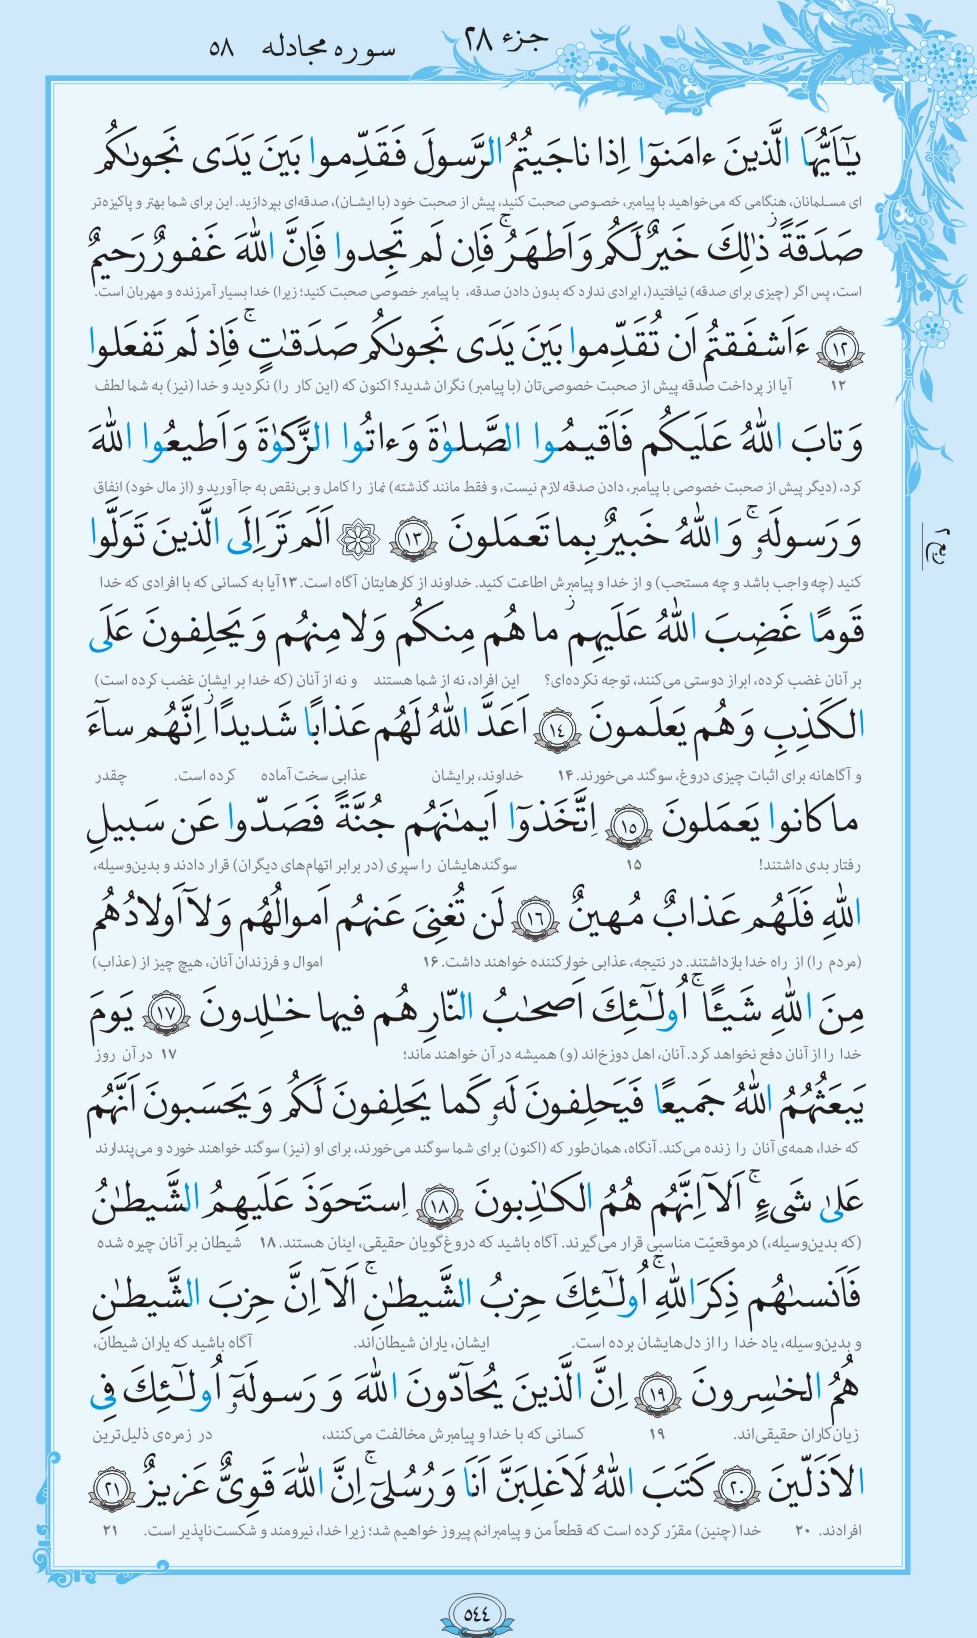 جزء ۲۸
سوره مجادله ۵۸
يـٰٓاَيُّهَا الَّذينَ ءامَنوٓا اِذا ناجَيتُمُ الرَّسولَ فَقَدِّموا بَينَ يَدَى نَجوىٰكُم
ای مسلمانان، هنگامی که می‌خواهید با پیامبر، خصوصی صحبت کنید، پیش از صحبت خود (با ایشان)، صدقه‌ای بپردازید. این برای شما بهتر و پاکیزه‌تر
صَدَقَةً ۚ ذٰلِكَ خَيرٌ لَكُم وَ اَطهَرُ ۚ فَاِن لَم تَجِدوا فَاِنَّ اللّٰهَ غَفورٌ رَحيمٌ
است، پس اگر (چیزی برای صدقه) نیافتید(، ایرادی ندارد که بدون دادن صدقه، با پیامبر خصوصی صحبت کنید؛ زیرا) خدا بسیار آمرزنده و مهربان است.
﴿١٢﴾ ءَاَشفَقتُم اَن تُقَدِّموا بَينَ يَدَى نَجوىٰكُم صَدَقـٰتٍ ۚ فَاِذ لَم تَفعَلوا
۱۲ آیا از پرداخت صدقه پیش از صحبت خصوصی‌تان (با پیامبر) نگران شدید؟ اکنون که (این کار را) نکردید و خدا (نیز) به شما لطف
وَ تابَ اللّٰهُ عَلَيكُم فَاَقيمُوا الصَّلوٰةَ وَ ءاتُوا الزَّكوٰةَ وَ اَطيعُوا اللّٰهَ
کرد، (دیگر پیش از صحبت خصوصی با پیامبر، دادن صدقه لازم نیست، و فقط مانند گذشته) نماز را کامل و بی‌نقص به جا آورید و (از مال خود) انفاق
وَ رَسولَهٗ ۚ وَ اللّٰهُ خَبيرٌ بِما تَعمَلونَ ﴿١٣﴾ ۞ اَلَم تَرَ اِلَى الَّذينَ تَوَلَّوا
کنید (چه واجب باشد و چه مستحب) و از خدا و پیامبرش اطاعت کنید. خداوند از کارهایتان آگاه است. ۱۳ آیا به کسانی که با افرادی که خدا
ربع ٢
قَومًا غَضِبَ اللّٰهُ عَلَيهِم ما هُم مِنكُم وَ لا مِنهُم وَ يَحلِفونَ عَلَى
بر آنان غضب کرده، ابراز دوستی می‌کنند، توجه نکرده‌ای؟ این افراد، نه از شما هستند و نه از آنان (که خدا بر ایشان غضب کرده است)
الكَذِبِ وَ هُم يَعلَمونَ ﴿١٤﴾ اَعَدَّ اللّٰهُ لَهُم عَذابًا شَديدًا ۖ اِنَّهُم سآءَ
و آگاهانه برای اثبات چیزی دروغ، سوگند می‌خورند. ۱۴ خداوند، برایشان عذابی سخت آماده کرده است. چقدر
ما كانوا يَعمَلونَ ﴿١٥﴾ اِتَّخَذوٓا اَيمـٰنَهُم جُنَّةً فَصَدّوا عَن سَبيلِ
رفتار بدی داشتند! ۱۵ سوگندهایشان را سپری (در برابر اتهام‌های دیگران) قرار دادند و بدین‌وسیله،
اللّٰهِ فَلَهُم عَذابٌ مُهينٌ ﴿١٦﴾ لَن تُغنِىَ عَنهُم اَموالُهُم وَ لآ اَولادُهُم
(مردم را) از راه خدا بازداشتند. در نتیجه، عذابی خوارکننده خواهند داشت. ۱۶ اموال و فرزندان آنان، هیچ چیز از (عذاب)
مِنَ اللّٰهِ شَيـًٔا ۚ اُولـٰٓئِكَ اَصحـٰبُ النّارِ هُم فيها خـٰلِدونَ ﴿١٧﴾ يَومَ
خدا را از آنان دفع نخواهد کرد. آنان، اهل دوزخ‌اند (و) همیشه در آن خواهند ماند؛ ۱۷ در آن روز
يَبعَثُهُمُ اللّٰهُ جَميعًا فَيَحلِفونَ لَهٗ كَما يَحلِفونَ لَكُم وَ يَحسَبونَ اَنَّهُم
که خدا، همه‌ی آنان را زنده می‌کند. آنگاه، همان‌طور که (اکنون) برای شما سوگند می‌خورند، برای او (نیز) سوگند خواهند خورد و می‌پندارند
عَلىٰ شَىءٍ ۚ اَلآ اِنَّهُم هُمُ الكـٰذِبونَ ﴿١٨﴾ اِستَحوَذَ عَلَيهِمُ الشَّيطـٰنُ
(که بدین‌وسیله،) در موقعیّت مناسبی قرار می‌گیرند. آگاه باشید که دروغ‌گویان حقیقی، اینان هستند. ۱۸ شیطان بر آنان چیره شده
فَاَنسىٰهُم ذِكرَ اللّٰهِ ۚ اُولـٰٓئِكَ حِزبُ الشَّيطـٰنِ ۚ اَلآ اِنَّ حِزبَ الشَّيطـٰنِ
و بدین‌وسیله، یاد خدا را از دل‌هایشان برده است. ایشان، یاران شیطان‌اند. آگاه باشید که یاران شیطان،
هُمُ الخـٰسِرونَ ﴿١٩﴾ اِنَّ الَّذينَ يُحآدّونَ اللّٰهَ وَ رَسولَهٗٓ اُولـٰٓئِكَ فِى
زیان‌کاران حقیقی‌اند. ۱۹ کسانی که با خدا و پیامبرش مخالفت می‌کنند، در زمره‌ی ذلیل‌ترین
الاَذَلّينَ ﴿٢٠﴾ كَتَبَ اللّٰهُ لَاَغلِبَنَّ اَنَا وَ رُسُلىٓ ۚ اِنَّ اللّٰهَ قَوِىٌّ عَزيزٌ ﴿٢١﴾
افرادند. ۲۰ خدا (چنین) مقرّر کرده است که قطعاً من و پیامبرانم پیروز خواهیم شد؛ زیرا خدا، نیرومند و شکست‌ناپذیر است. ۲۱
٥٤٤